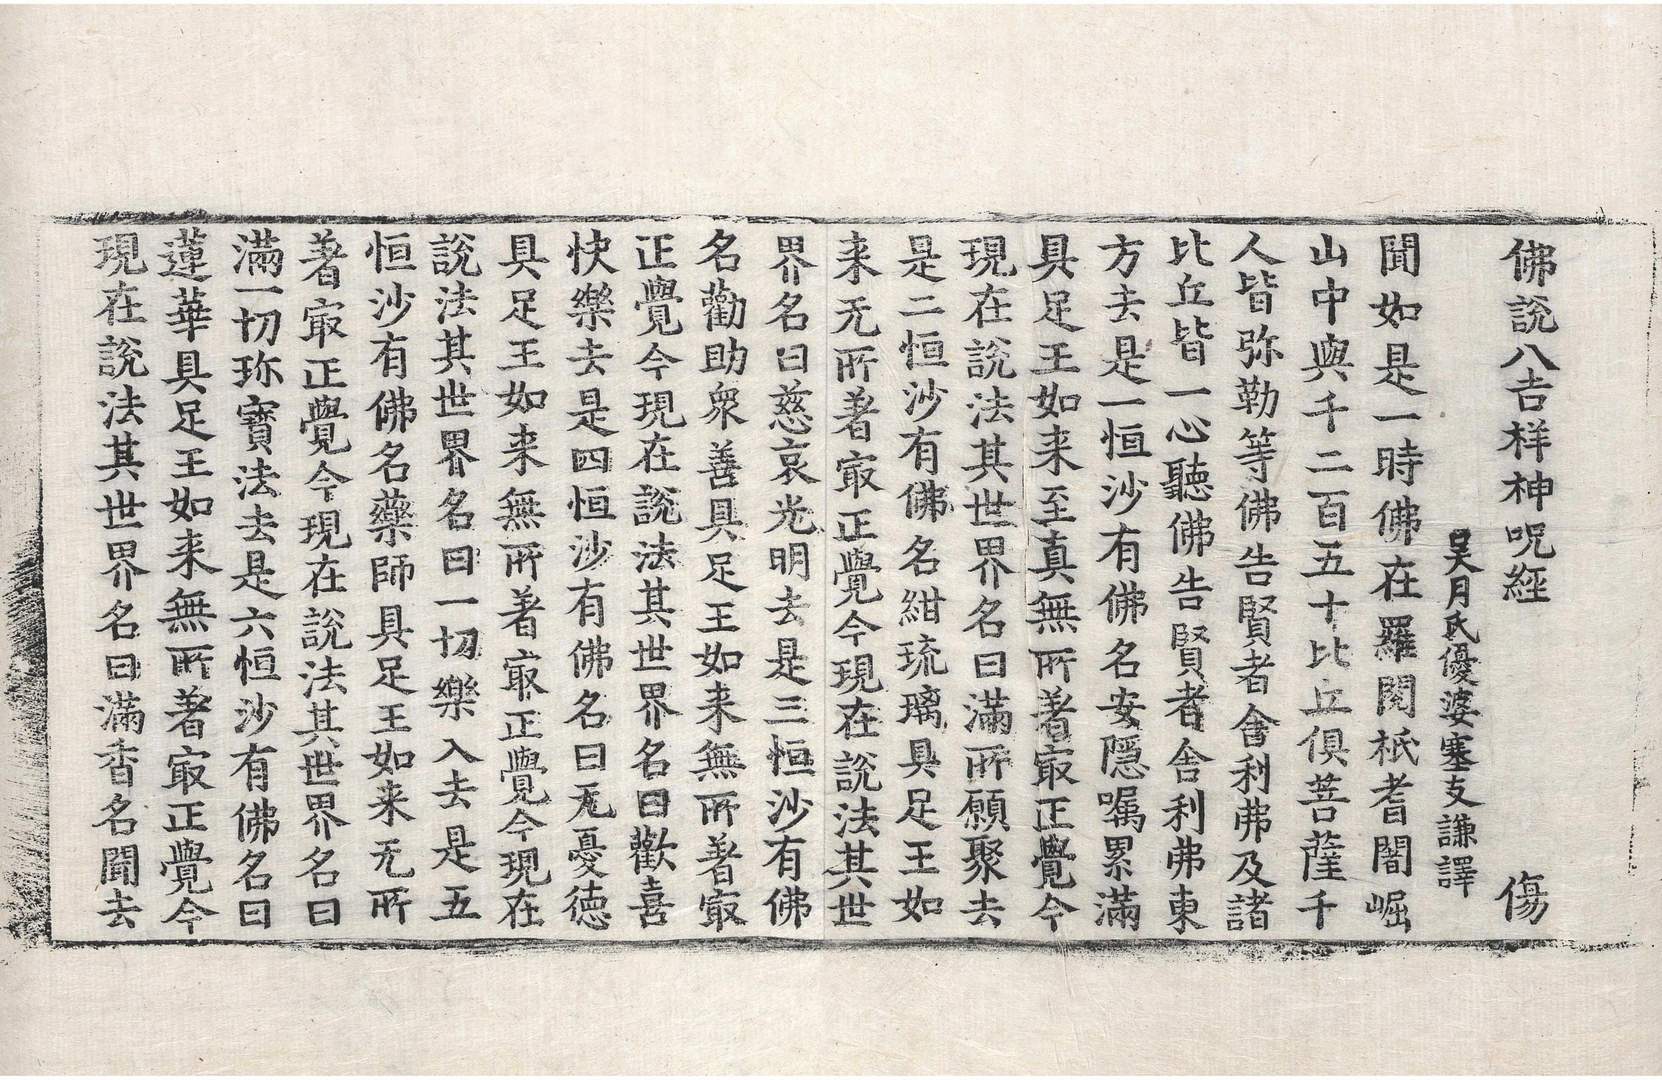 佛說八吉祥神呪經 傷
吳月氏優婆塞支謙譯
聞如是一時佛在羅閱祇耆闍崛
山中與千二百五十比丘俱菩薩千
人皆弥勒等佛告賢者舍利弗及諸
比丘皆一心聽佛告賢者舍利弗東
方去是一恒沙有佛名安隱嘱累滿
具足王如来至真無所著㝡正覺今
現在說法其世界名曰滿所願聚去
是二恒沙有佛名紺琉璃具足王如
来无所著㝡正覺今現在說法其世
界名曰慈哀光明去是三恒沙有佛
名勸助衆善具足王如来無所著㝡
正覺今現在說法其世界名曰歡喜
快樂去是四恒沙有佛名曰无憂德
具足王如来無所著㝡正覺今現在
說法其世界名曰一切樂入去是五
恒沙有佛名藥師具足王如来无所
著㝡正覺今現在說法其世界名曰
滿一切珎寶法去是六恒沙有佛名曰
蓮華具足王如来無所著㝡正覺今
現在說法其世界名曰滿香名聞去